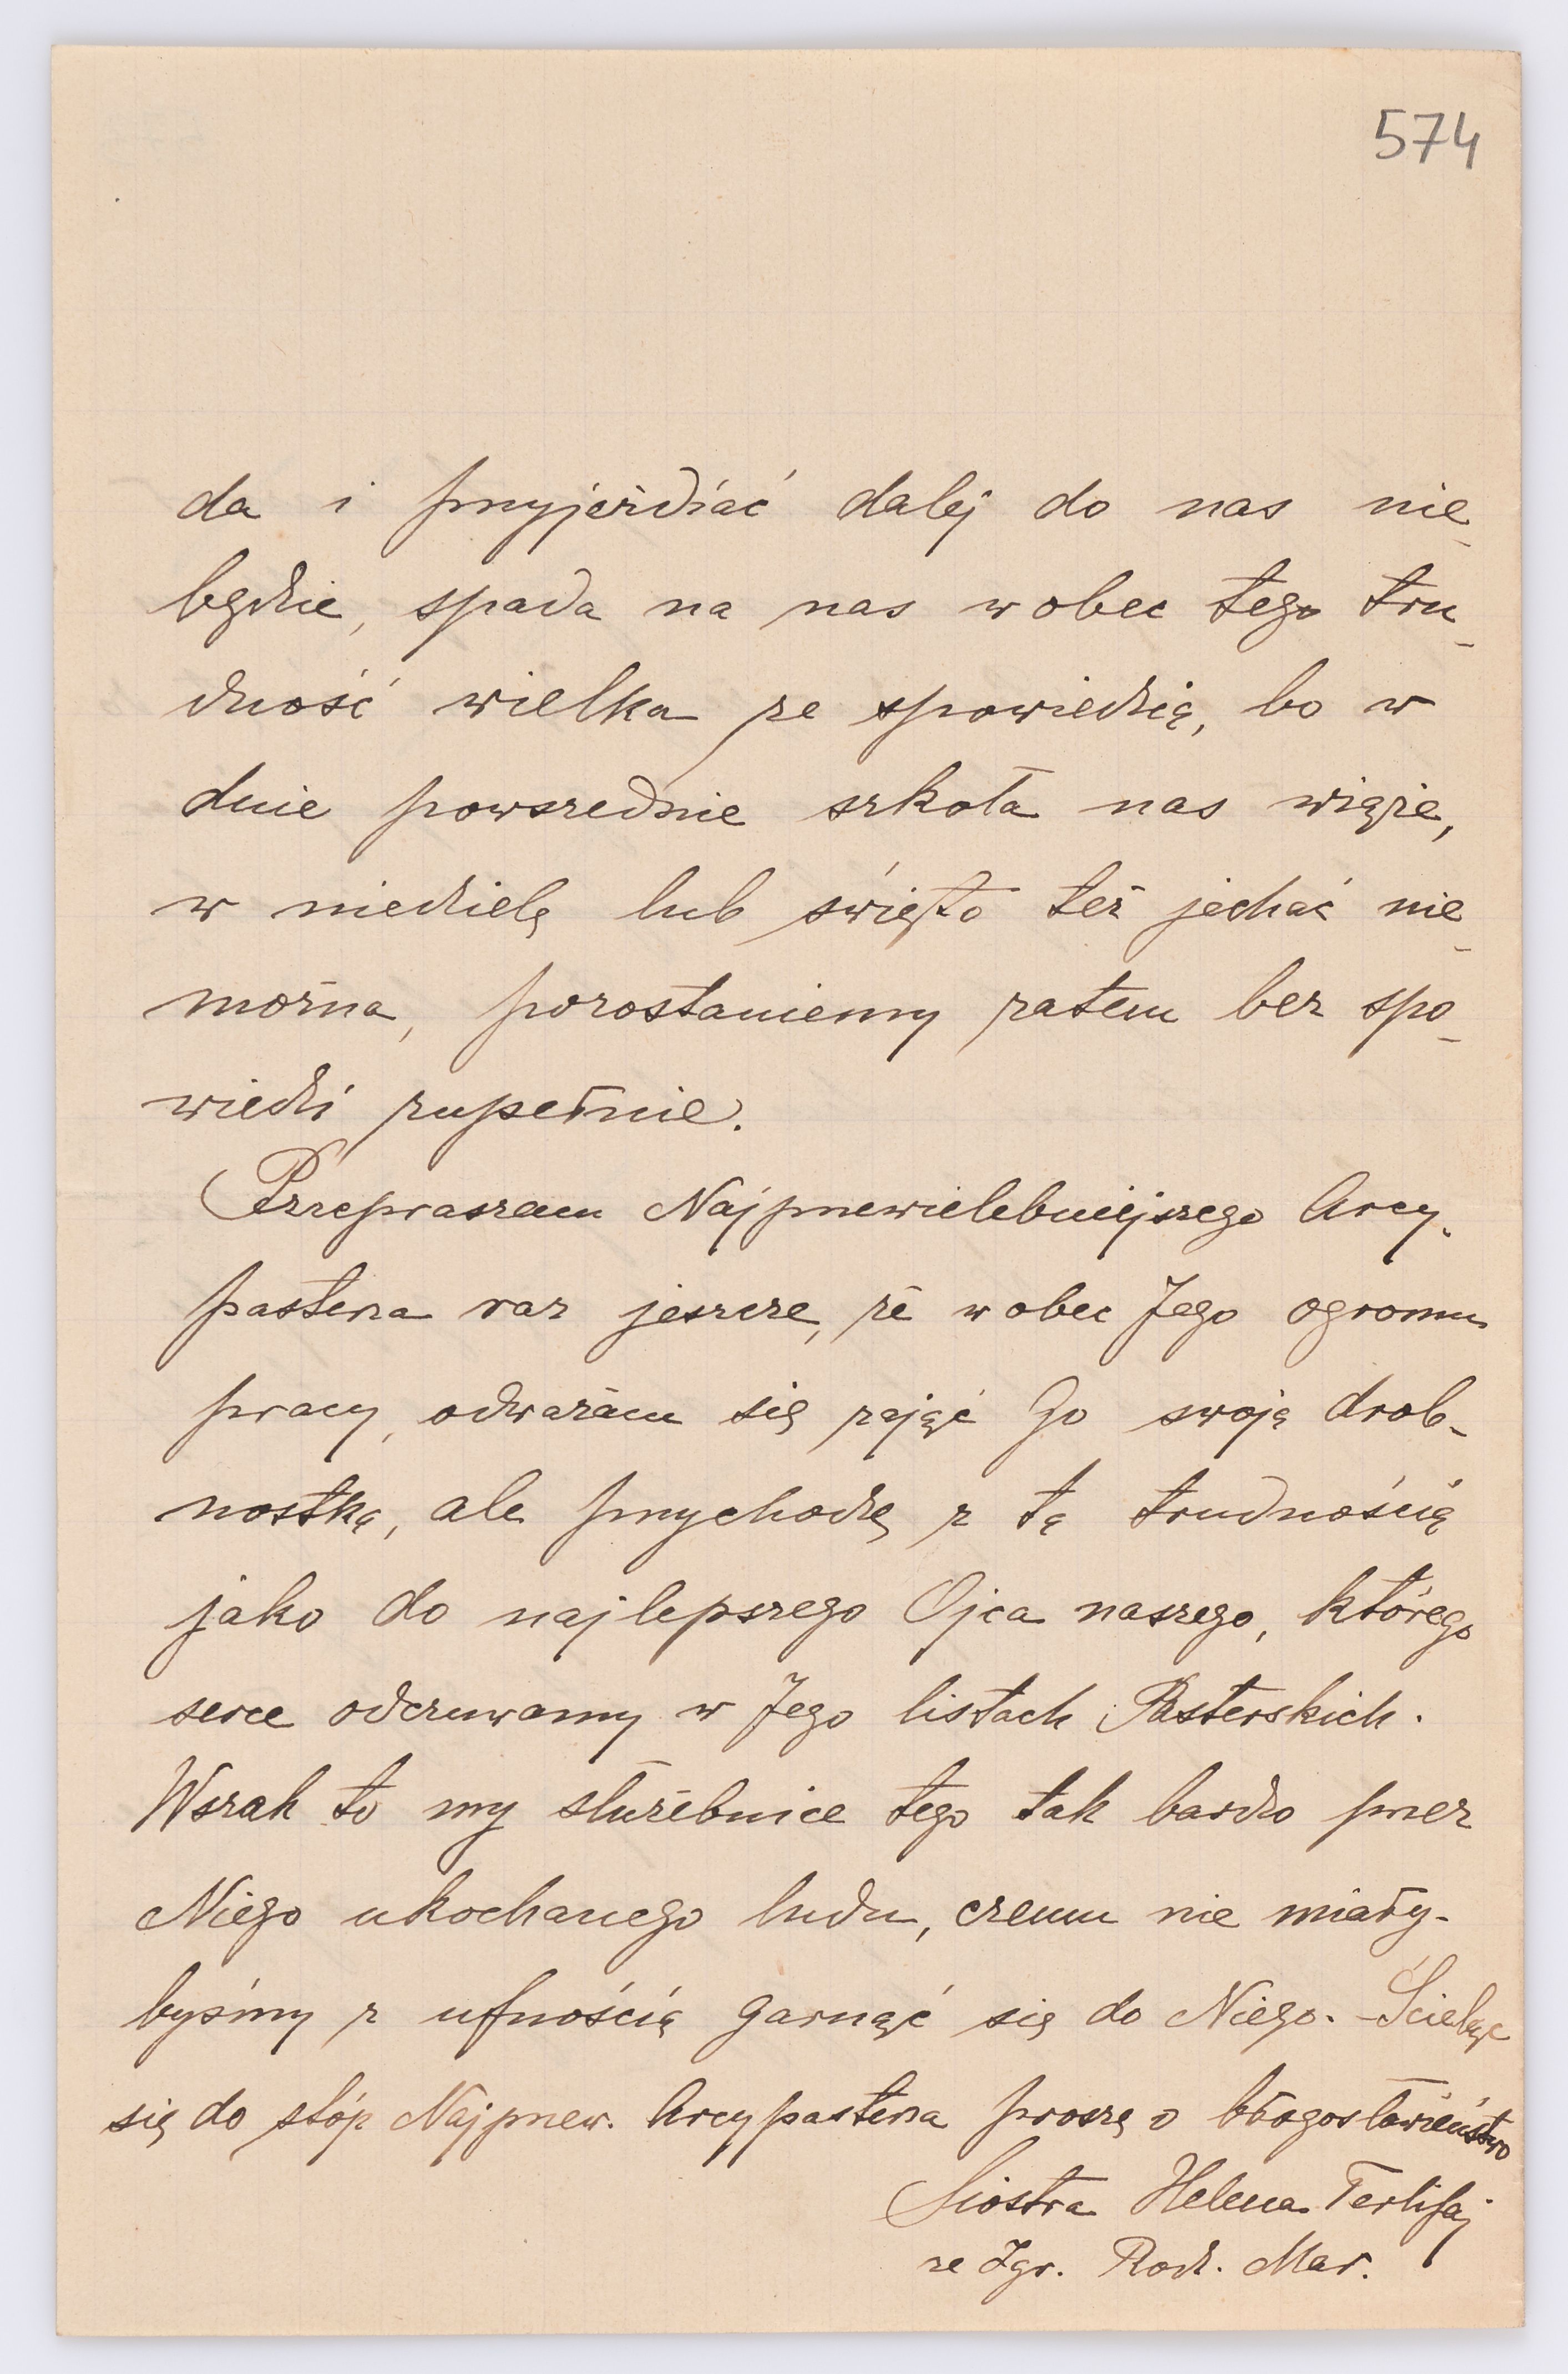 574
da i przyjeżdżać dalej do nas nie
będzie, spada na nas wobec tego tru_
dność wielka ze spowiedzią, bo w
dnie powszednie szkoła nas wiąże,
w niedzielę lub święto też jechać nie
można, pozostaniemy zatem bez spo_
wiedzi zupełnie.
Przepraszam Najprzewielebniejszego Arcy-
pasterza raz jeszcze, że wobec Jego ogromu
pracy, odważam się zająć Go swoją drob-
nostką, ale przychodzę z tą trudnością
jako do najlepszego Ojca naszego, którego
serce odczuwamy w Jego listach Pasterskich.
Wszak to my służebnice tego tak bardzo przez
Niego ukochanego ludu, czemu nie miały-
byśmy z ufnością garnąć się do Niego. - Ścieląc
się do stóp Najprzew. Arcypasterza proszę o błogosławieństwo
Siostra Helena
ze Zgr. Rodz. Mar.